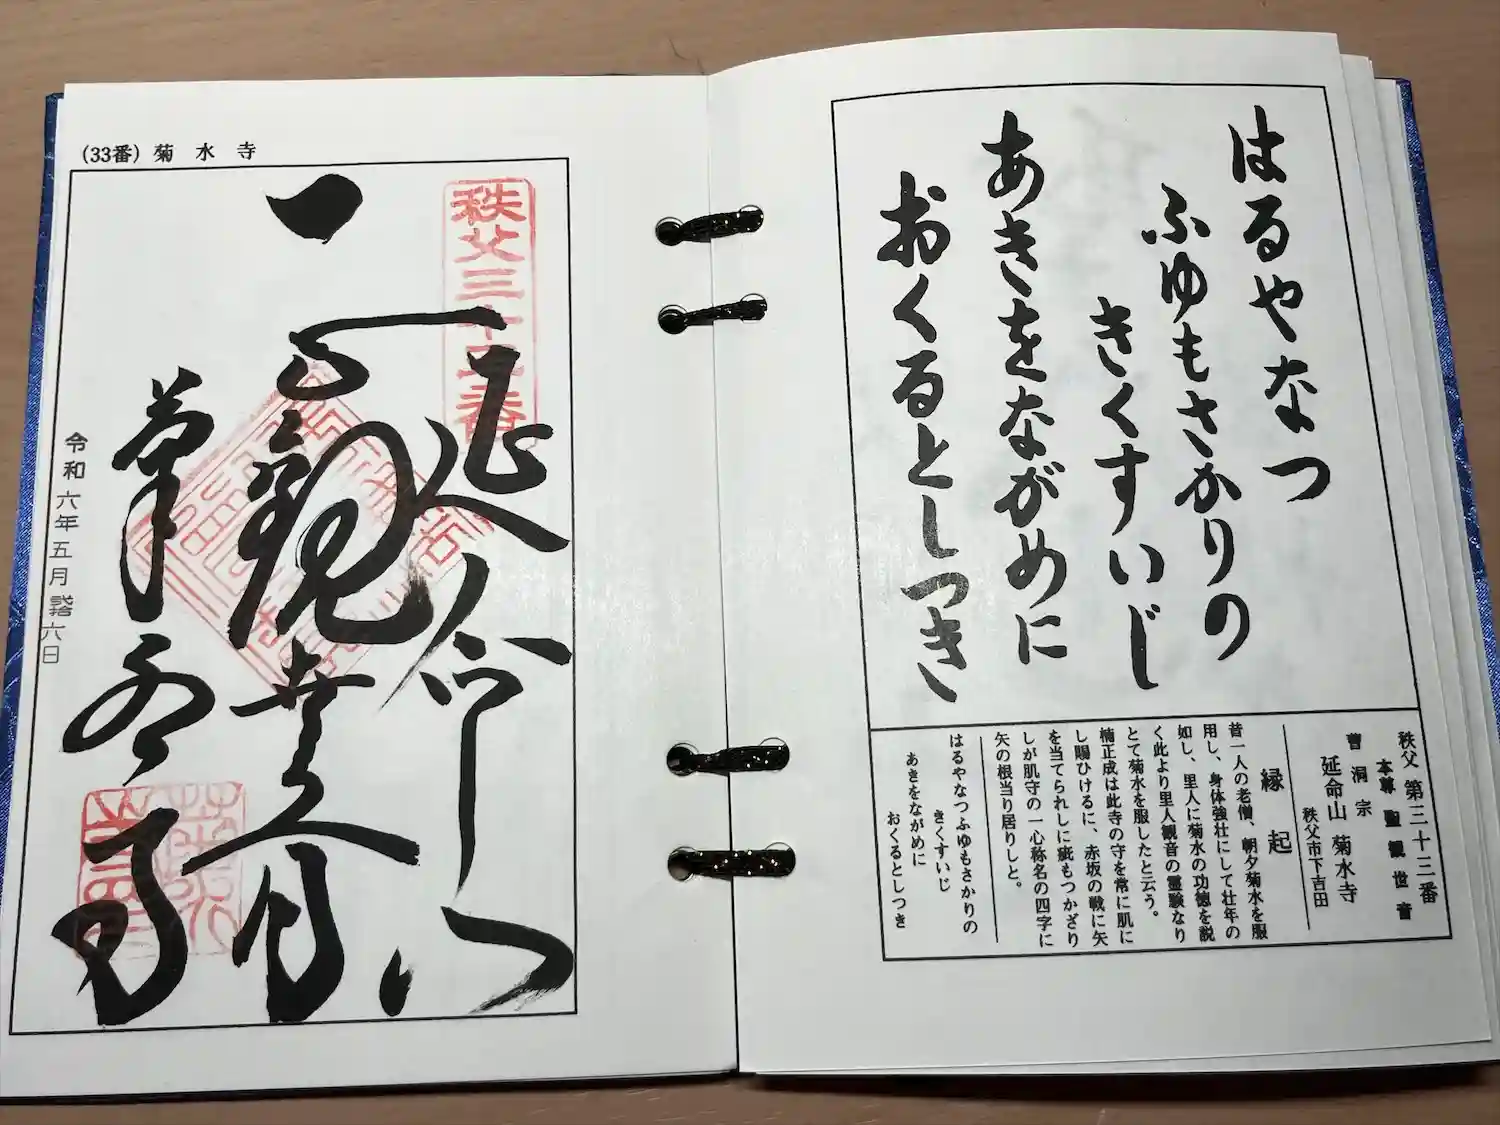 はるやなつ
ふゆもさかりの
きくすいじ
あきをながめに
おくるとしつき
秩父 第三十三番
本尊 聖観世音
曹洞宗
延命山 菊水寺
秩父市下吉田
縁起
昔一人の老僧、朝夕菊水を服
用し、身体強壮にして壮年の
如し、里人に菊水の功徳を説
く此より里人観音の霊験なり
とて菊水を服したと云う。
楠正成は此寺の守を常に肌に
し賜ひけるに、赤坂の戦に矢
を当てられしに疵もつかざり
しが肌守の一心称名の四字に
矢の根当り居りしと。
はるやなつふゆもさかりの
きくすいじ
あきをながめに
おくるとしつき
(33番) 菊水寺
秩父三十三番
延命山
観世音
菊水寺
令和六年五月 六日